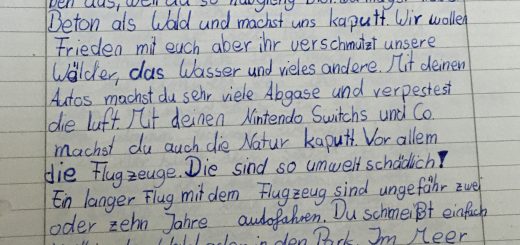 aus, weil du so
Beton als Wald und machst uns kaputt. Wir wollen
Frieden mit euch aber ihr verschmutzt unsere
Wälder, das Wasser und vieles andere. Mit deinen
Autos machst du sehr viele Abgase und verpestest
die Luft. Mit deinen Nintendo Switchs und Co.
machst du auch die Natur kaputt. Vor allem
die Flugzeuge. Die sind so umwelt schädlich!
Ein langer Flug mit dem Flugzeug sind ungefähr zwei
oder zehn Jahre autofahren. Du schmeißt einfach
in den Park. Im Meer